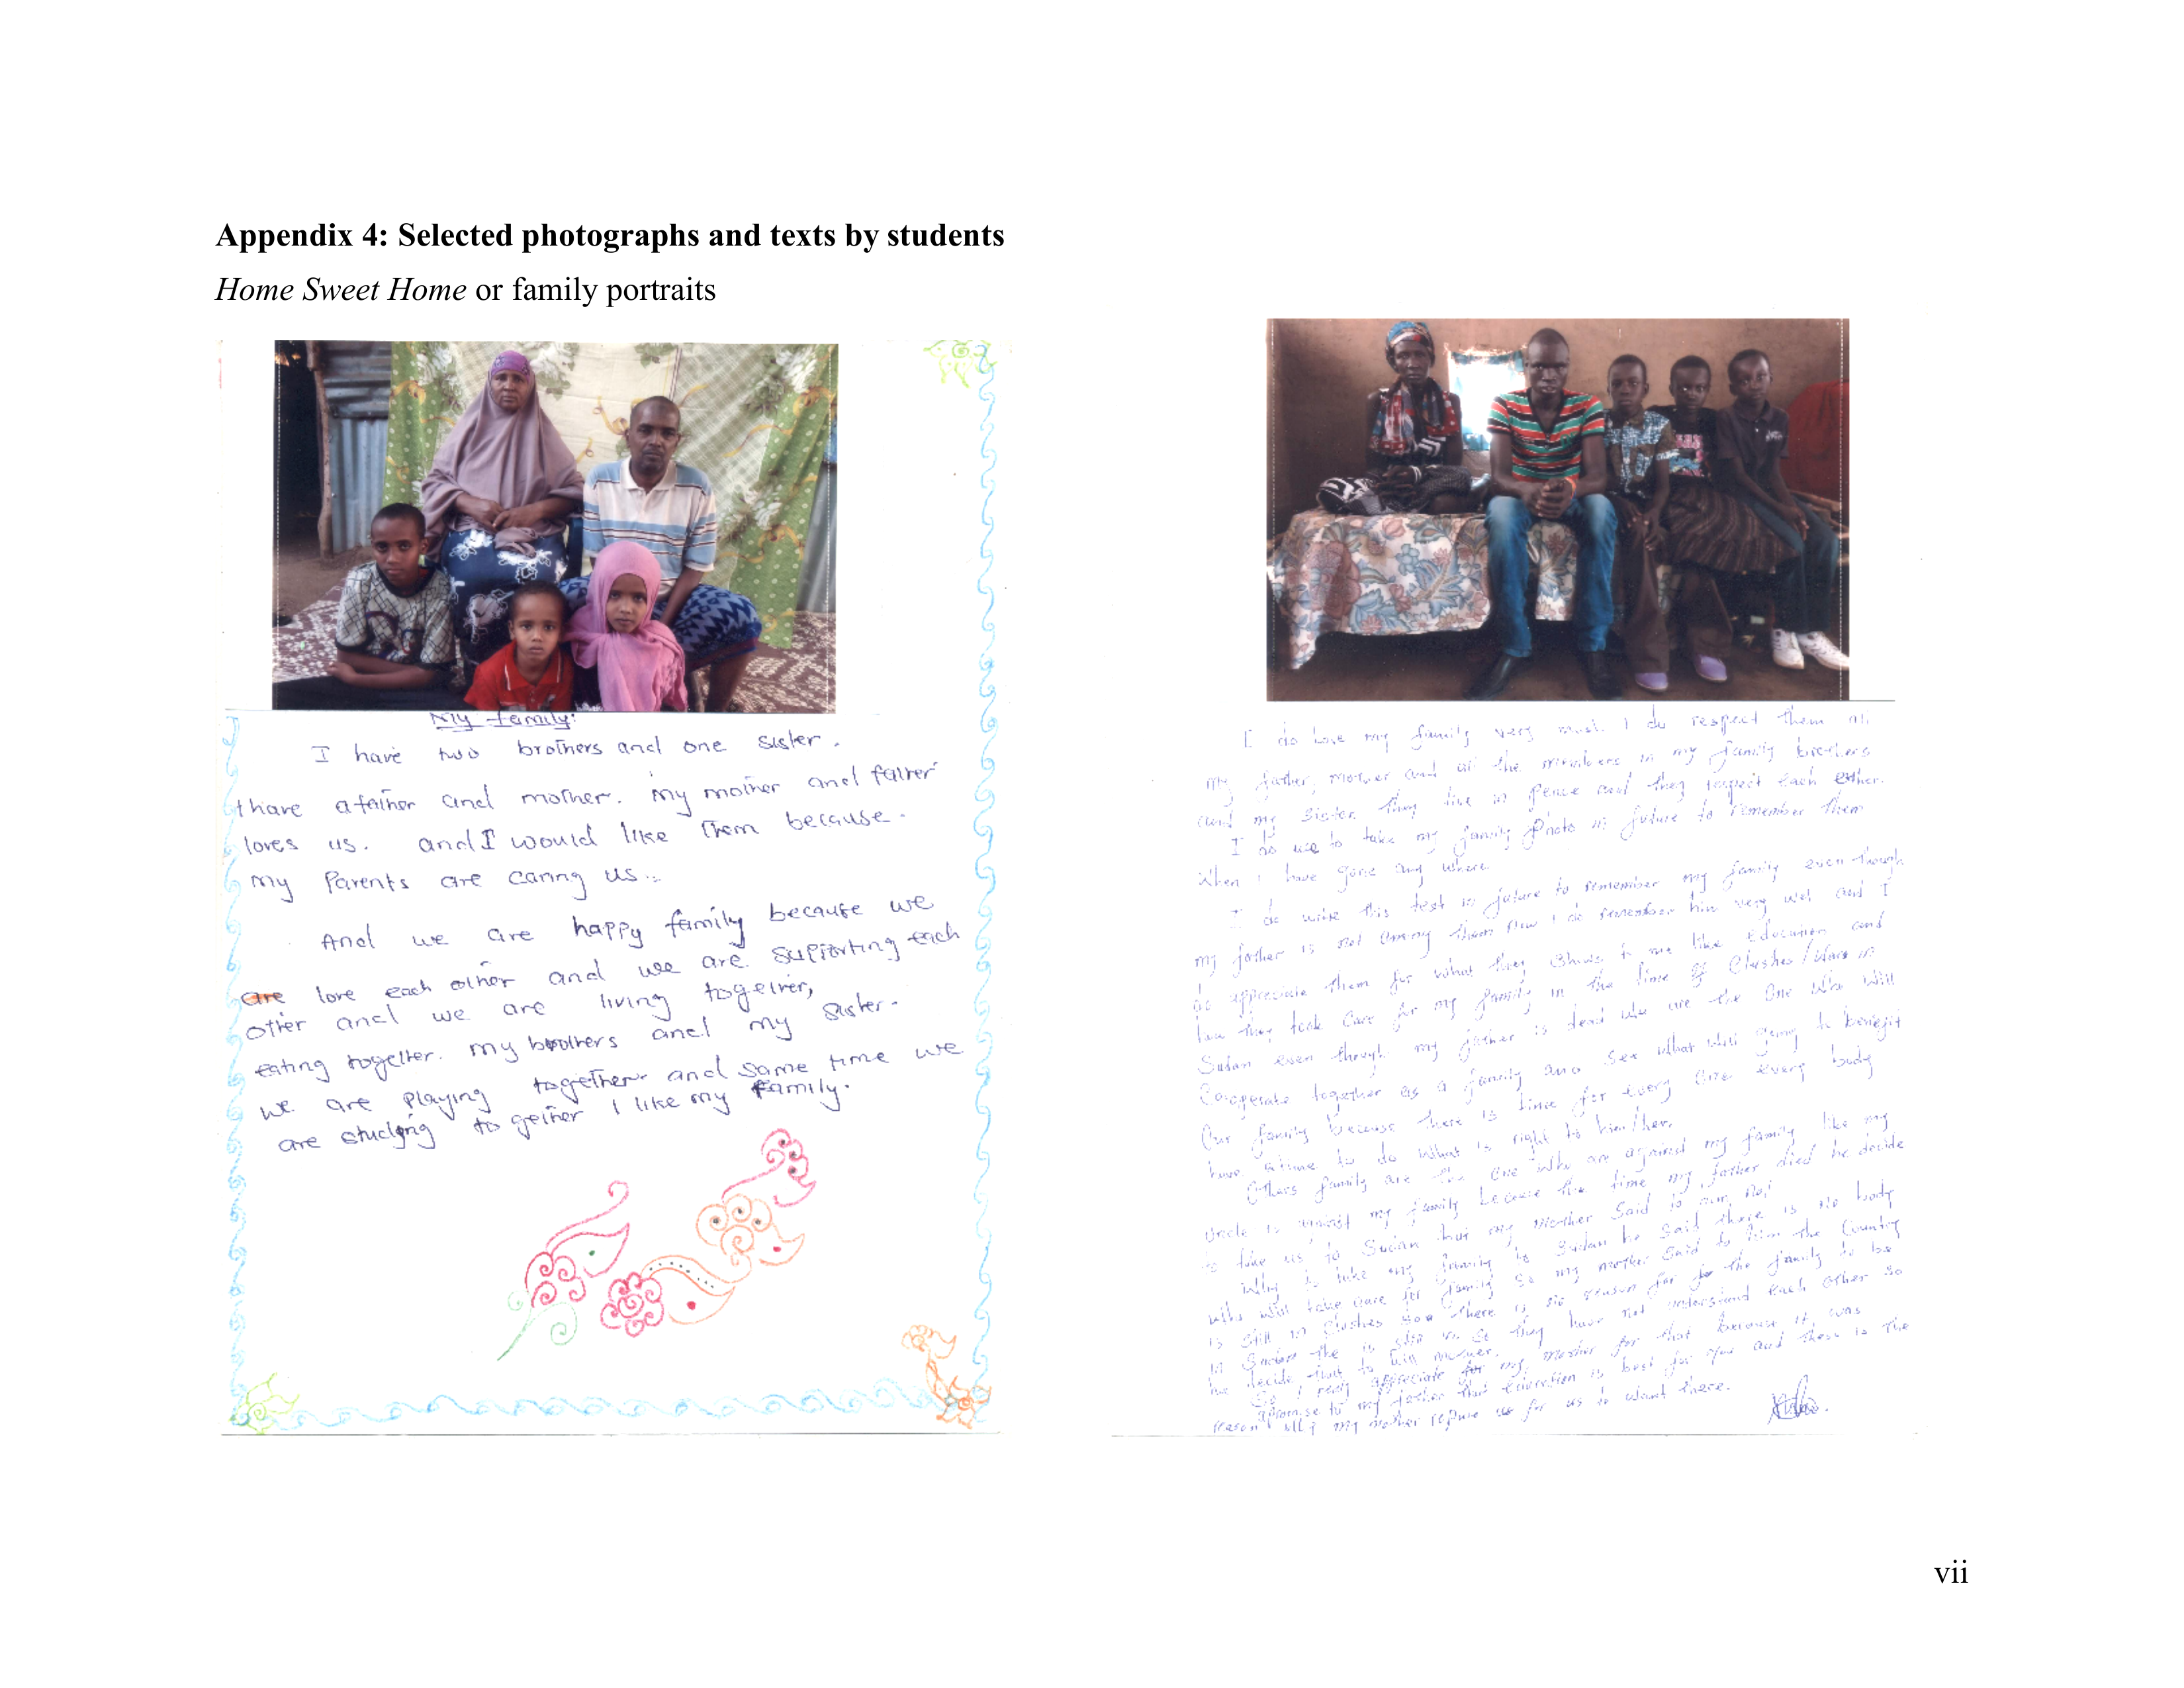 Appendix 4: Selected photographs and texts by students
Home Sweet Home or family portraits
My family:
I have two brothers and one sister.
I have a father and mother. My mother and father
loves us. and I would like them because.
my Parents are caring us..
And we are happy family because we
are love each other and we are supporting each
other and we are living together,
eating together. my brothers and my sister.
we are playing together and same time we
are studying together I like my family.
I do love my family very much. I do respect them all
my father, mother and all the members in my family brothers
and my sister they live in peace and they respect each other.
I do use to take my family photo in future to remember them
When I have gone any where
I do write this text in future to remember my family even though
my father is not among them now I do remember him very well and I
do appreciate them for what they shows to me like Education and
how they took care for my family in the time of Clashes/Wars in
Sudan even though my father is dead we are the one who will
Cooperate together as a family and see what will going to benefit
Our family because there is time for every one every body
have a time to do what is right to him/her.
Others family are the one who are against my family like my
uncle is against my family because the time my father died he decide
to take us to Sudan but my mother said to him, no!
to take my family to Sudan he said there is no body
who will take care for family so my mother said to him the Country
is still in clashes there is no reason for the family to be
in Sudan the is they have not understand each other so
he decide that to kill mother.
So I really appreciate for my mother for that because it was
apromise to my father that Education is best for you and there is the
reason why my mother refuse us for us to want there.
vii